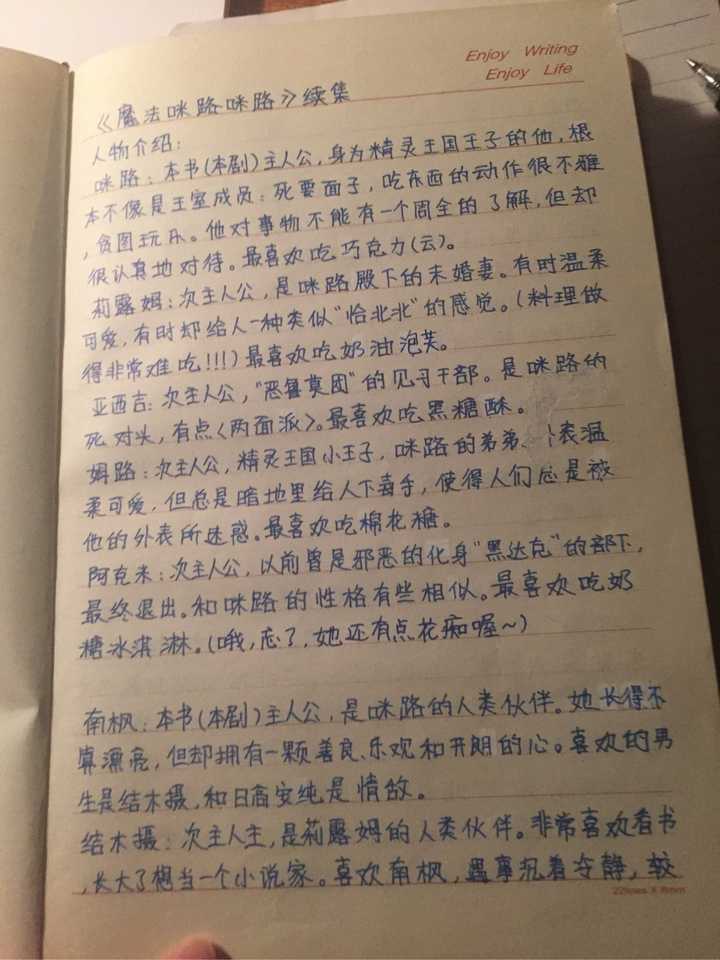 Enjoy Writing
Enjoy Life
《魔法咪路咪路》续集
人物介绍:
咪路:本书(本剧)主人公,身为精灵王国王子的他,根
本不像是王室成员:死要面子,吃东西的动作很不雅
,贪图玩乐。他对事物不能有一个周全的了解,但却
很认真地对待。最喜欢吃巧克力(云)。
莉露姆:次主人公,是咪路殿下的未婚妻。有时温柔
可爱,有时却给人一种类似"恰北北"的感觉。(料理做
得非常难吃!!!)最喜欢吃奶油泡芙。
亚西吉:次主人公,"恶鲁莫团"的见习干部。是咪路的
死对头,有点〈两面派〉。最喜欢吃黑糖酥。
姆路:次主人公,精灵王国小王子,咪路的弟弟、表温
柔可爱,但总是暗地里给人下毒手,使得人们总是被
他的外表所迷惑。最喜欢吃棉花糖。
阿克米:次主人公,以前曾是邪恶的化身"黑达克"的部下,
最终退出。和咪路的性格有些相似。最喜欢吃奶
糖冰淇淋。(哦,忘了,她还有点花痴喔~)
南枫:本书(本剧)主人公,是咪路的人类伙伴。她长得不
算漂亮,但却拥有一颗善良、乐观和开朗的心。喜欢的男
生是结木摄,和日高安纯是情敌。
结木摄:次主人主,是莉露姆的人类伙伴。非常喜欢看书
,长大了想当一个小说家。喜欢南枫,遇事沉着冷静,较